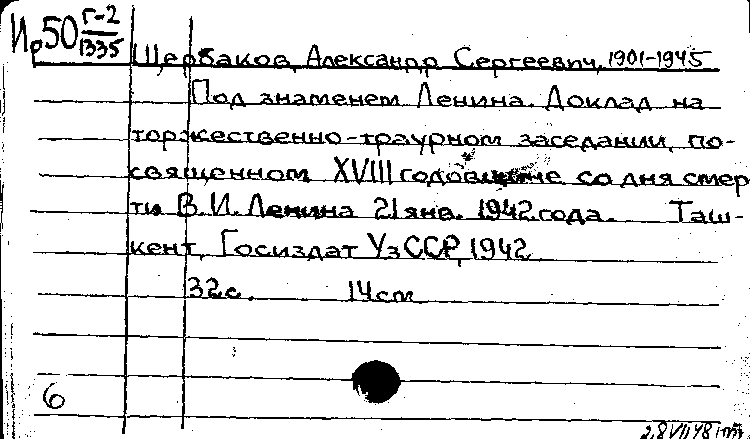 Ир50 Г-2/1335
Щербаков, Александр Сергеевич, 1901-1945
Под знаменем Ленина. Доклад на
торжественно-траурном заседании, по-
священном XVIII годовщине со дня смер
ти В.И. Ленина 21 янв. 1942 года. Таш-
кент, Госиздат УзССР, 1942
32с. 14см
6